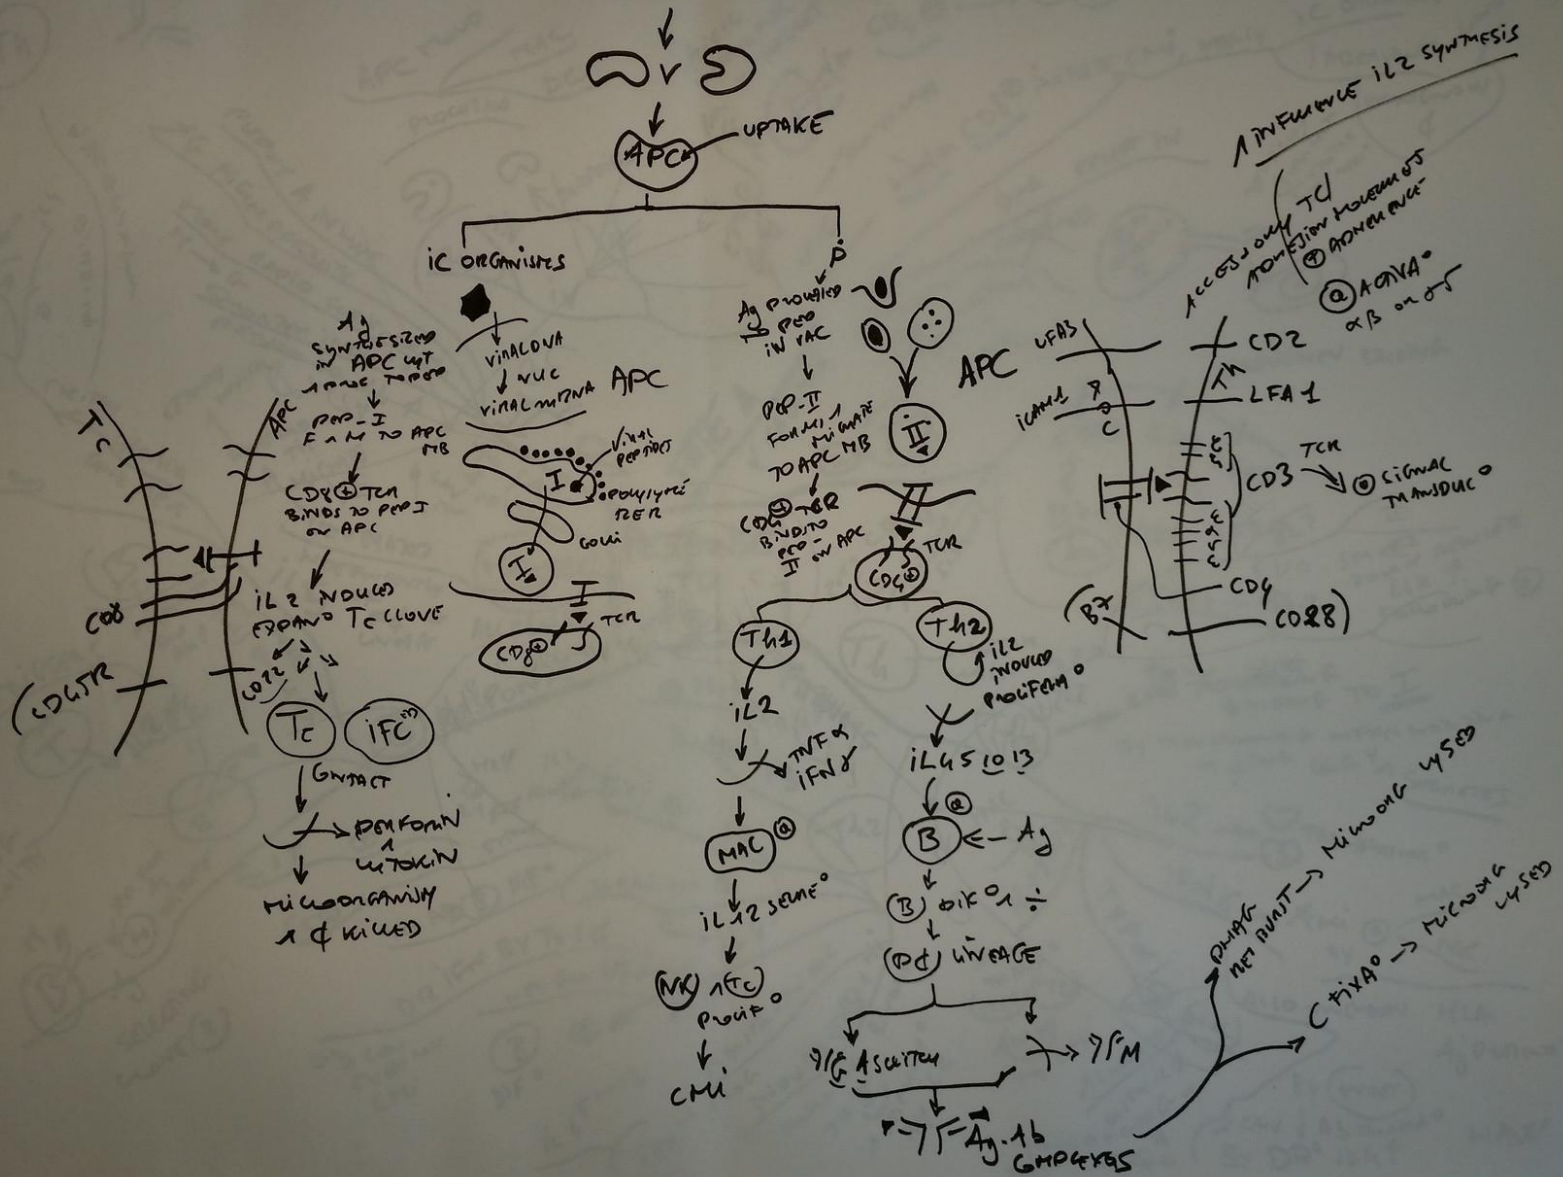 APC
UPTAKE
IC ORGANISMS
Ag
SYNTHESIZED
IN APC
PEP-I
TO APC
MB
CD8⊕ TCR
BINDS TO PEP I
ON APC
IL2 INDUCED
EXPAN° Tc CLONE
Tc
CONTACT
PERFORIN
1
CYTOKIN
MICROORGANISM
1 ¢ KILLED
Tc
APC
CD8
(CD45R
CD22
VIRAL DNA
NUC
VIRAL mRNA
APC
VIRAL
PEPTIDES
I
RER
GOLGI
I
I
TCR
CD8⊕
P
Ag
TO PEP
IN VAC
PEP-II
MIGRATE
TO APC MB
CD4⊕ TCR
BINDS TO
PEP-
II ON APC
II
TCR
CD4⊕
Th1
IL2
TNFα
IFNγ
MAC @
IL12 SECRE°
NK 1 Tc
PROLIF°
CMI
Th2
IL2
INDUCED
PROLIFERA°
IL4 5 10 13
@
B ← Ag
B DIF° 1 ÷
P¢ LINEAGE
SWITCH
M
Ag-Ab
COMPLEXES
PHAG
MET BURST → MICROORG LYSED
C FIXA° → MICROORG
LYSED
1 INFLUENCE IL2 SYNTHESIS
ACCESSORY TC/
ADHESION MOLECULES
⊕ ADHERENCE
@ ACTIVA°
αβ OR γδ
APC
LFA3
ICAM1
CD2
Th
LFA1
CD3
TCR
SIGNAL
TRANSDUC°
CD4
(B7
CD28)